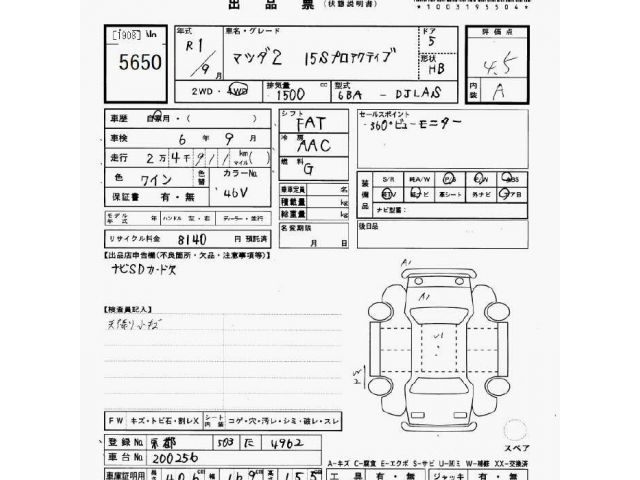 出品票 (状態説明書)
*1003195504*
[1908] No.
5650
年式 R1/9月
車名・グレード マツダ2 15Sプロアクティブ
ドア 5
形状 HB
評価点 4.5
内装 A
2WD・4WD
排気量 1500 cc
型式 6BA - DJLAS
車歴 自家用・( )
車検 6年9月
走行 2万4千911 km(マイル)( )
色 ワイン 色替
カラーNo. 46V
保証書 有・無
モデル年式 年 ハンドル 左・右 ディーラー・並行
リサイクル料金 8140 円 預託済
シフト FAT
冷房 AAC
燃料 G
乗車定員 名
積載量 kg
総重量 kg
名変期限 月 日
セールスポイント
360°ビューモニター
装備品
S/R 純A/W P/S P/W ABS
純TV 純ナビ 革シート 外ナビ エア日
ナビ型番:
後日品
【出品店申告欄(不良箇所・欠品・注意事項等)】
ナビSDカード欠
【検査員記入】
A1
A1
U1
W2
FW キズ・トビ石・割レX シート内装 コゲ・穴・汚レ・シミ・破レ・スレ
スペア
登録No. 京都 503 に 4962
車台No. 200256
A-キズ C-腐食 E-エクボ S-サビ U-凹ミ W-補修 XX-交換済
車庫証明用 406 cm 169 cm 155 cm
工具 有・無 ジャッキ 有・無